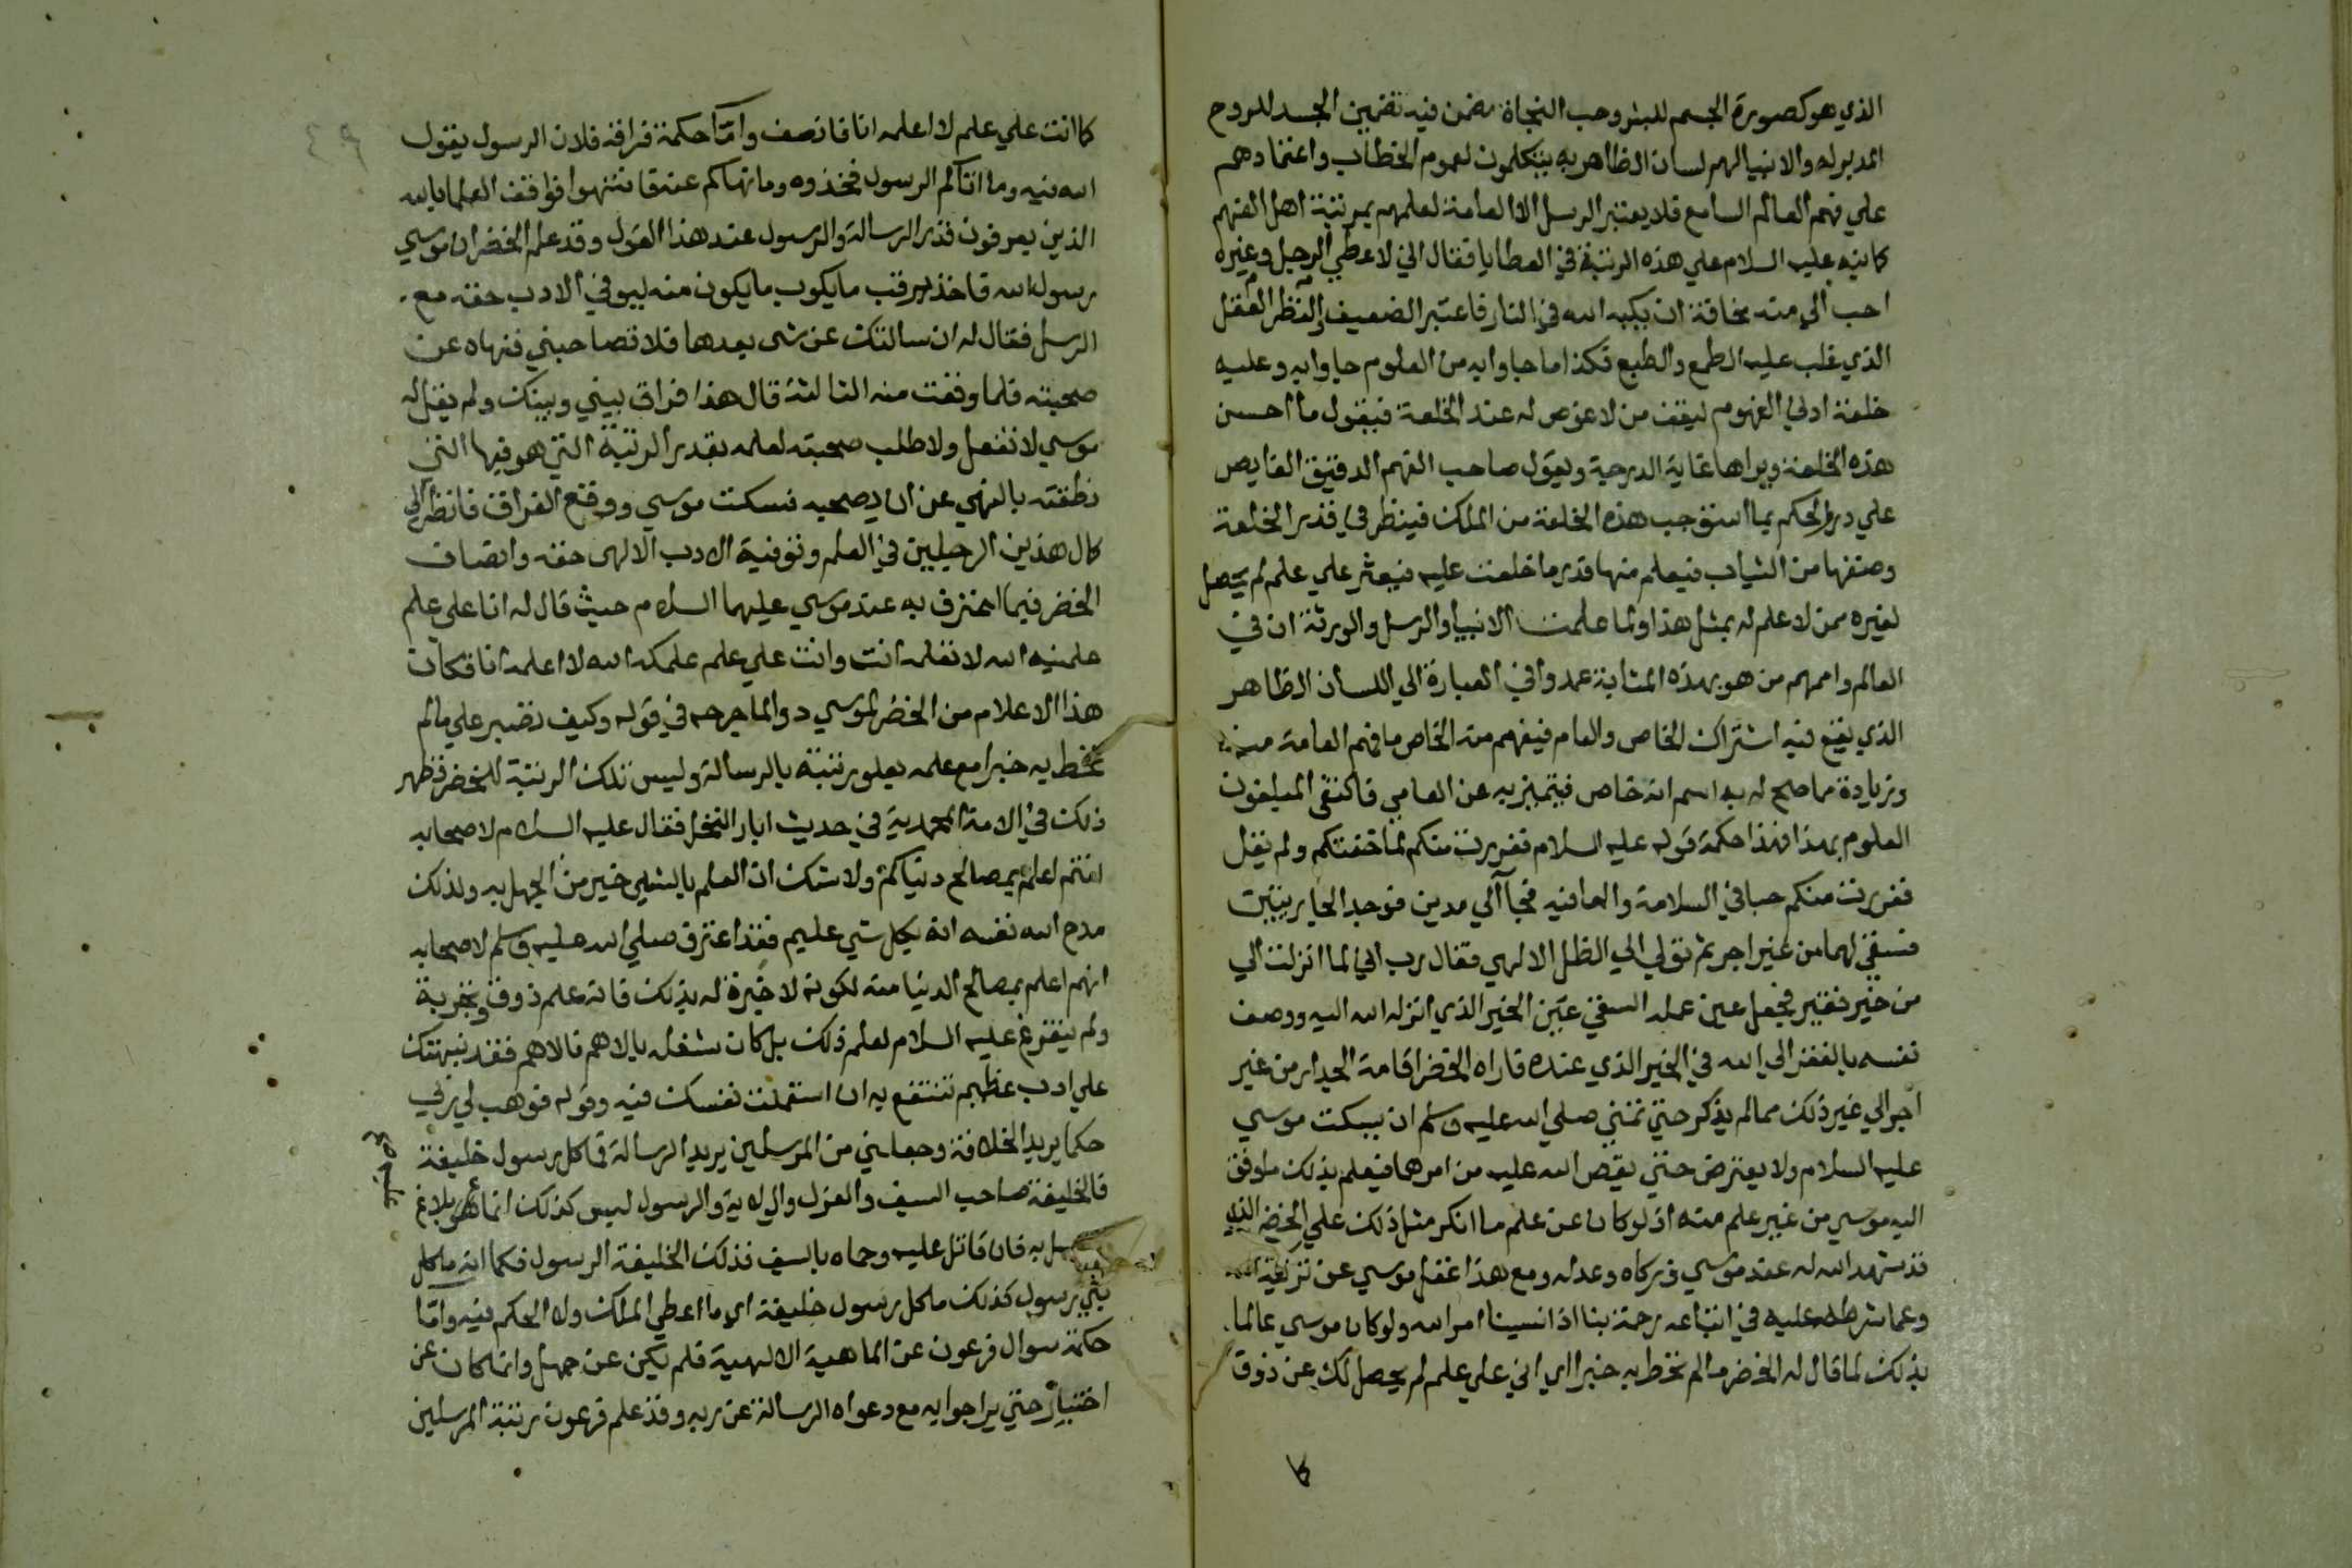 الذي هو كصورة الجسم للبشر وحب النجاة مضمن فيه تضمين الجسد للروح
المدبر له والانبيا لهم لسان الظاهر به يتكلمون لعموم الخطاب واعتمادهم
علي فهم العالم السامع فلا يعتبر الرسل الا العامة لعلمهم بمرتبة اهل الفهم
كما نبه عليه السلام علي هذه الرتبة في العطايا فقال اني لاعطي الرجل وغيره
احب الي منه مخافة ان يكبه الله في النار فاعتبر الضعيف والنظر العقل
الذي غلب عليه الطمع والطبع فكذا ما جاوا به من العلوم جاوا به وعليه
خلعة ادني الفهوم ليقف من لا غوص له عند الخلعة فيقول ما احسن
هذه الخلعة ويراها غاية الدرجة ويقول صاحب الفهم الدقيق الغايص
علي درر الحكم بما استوجب هذه الخلعة من الملك فينظر في قدر الخلعة
وصنفها من الثياب فيعلم منها قدر ما خلعت عليه فيعثر علي علم لم يحصل
لغيره ممن لا علم له بمثل هذا ولما علمت الانبيا والرسل والورثة ان في
العالم واممهم من هو بهذه المثابة عمدوا في العبارة الي اللسان الظاهر
الذي يقع فيه اشتراك الخاص والعام فيفهم منه الخاص ما فهم العامة منه
وزيادة مما صح له به اسم انه خاص فيتميز به عن العامي فاكتفي المبلغون
العلوم بهذا فهذا حكمة قوله عليه السلام ففررت منكم لما خفتكم ولم يقل
ففررت منكم حبا في السلامة والعافيه فجآ الي مدين فوجد الجاريتين
فسقي لهما من غير اجر ثم تولي الي الظل الالهي فقال رب اني لما انزلت الي
من خير فقير فجعل عين عمله السقي عين الخير الذي انزله الله اليه ووصف
نفسه بالفقر الي الله في الخير الذي عنده فاراه الخضر اقامة الجدار من غير
اجر الي غير ذلك مما لم يذكر حتي تمني صلي الله عليه وسلم ان يسكت موسي
عليه السلام ولا يعترض حتي يقص الله عليه من امرهما فيعلم بذلك ما وفق
اليه موسي من غير علم منه اذ لو كان عن علم ما انكر مثل ذلك علي الخضر الذي
قد شهد الله له عند موسي وزكاه وعدله ومع هذا غفل موسي عن تزكية الله
وعما شرطه عليه في اتباعه رحمة بنا اذا نسينا امر الله ولو كان موسي عالما
بذلك لما قال له الخضر ما لم تحط به خبرا اي اني علي علم لم يحصل لك عن ذوق
كا
كما انت علي علم لا اعلمه انا فانصف واما حكمة فراقه فلان الرسول يقول
الله فيه وما اتاكم الرسول فخذوه وما نهاكم عنه فانتهوا فواقف العلما بالله
الذين يعرفون قدر الرسالة والرسول عند هذا القول وقد علم الخضر ان موسي
رسول الله فاخذ يرقب ما يكوب ما يكون منه ليوفي الادب حقه مع
الرسل فقال له ان سالتك عن شي بعدها فلا تصاحبني فنهاه عن
صحبته فلما وقفت منه الثالثة قال هذا فراق بيني وبينك ولم يقل له
موسي لا تفعل ولا طلب صحبته لعلمه بقدر الرتبة التي هو فيها التي
نطقته بالنهي عن ان يصحبه فسكت موسي ووقع الفراق فانظر الي
كمال هذين الرجلين في العلم وتوفية الادب الالهي حقه وانصاف
الخضر فيما اعترف به عند موسي عليهما السلام حيث قال له انا علي علم
علمنيه الله لا تعلمه انت وانت علي علم علمكه الله لا اعلمه انا فكان
هذا الاعلام من الخضر لموسي دوا لما جرحه في قوله وكيف تصبر علي ما لم
تحط به خبرا مع علمه بعلو رتبته بالرسالة وليس تلك الرتبة للخضر فظهر
ذلك في الامة المحمدية في حديث ابار النخل فقال عليه السلام لاصحابه
انتم اعلم بمصالح دنياكم ولا شك ان العلم بالشي خير من الجهل به ولذلك
مدح الله نفسه انه بكل شي عليم فقد اعترف صلي الله عليه وسلم لاصحابه
انهم اعلم بمصالح الدنيا منه لكونه لا خبرة له بذلك فانه علم ذوق وتجربة
ولم يتفرغ عليه السلام لعلم ذلك بل كان شغله بالاهم فالاهم فقد نبهتك
علي ادب عظيم تنتفع به ان استعملت نفسك فيه وقوله فوهب لي ربي
حكما يريد الخلافة وجعلني من المرسلين يريد الرسالة فما كل رسول خليفة
فالخليفة صاحب السيف والعزل والولاية والرسول ليس كذلك انما هو بلاغ
به فان قاتل عليه وحماه بالسيف فذلك الخليفة الرسول فكما انه ما كل
نبي رسول كذلك ما كل رسول خليفة اي ما اعطي الملك ولا الحكم فيه واما
حكمة سوال فرعون عن الماهية الالهية فلم يكن عن جهل وانما كان عن
اختبار حتي يرا جوابه مع دعواه الرسالة عن ربه وقد علم فرعون رتبة المرسلين